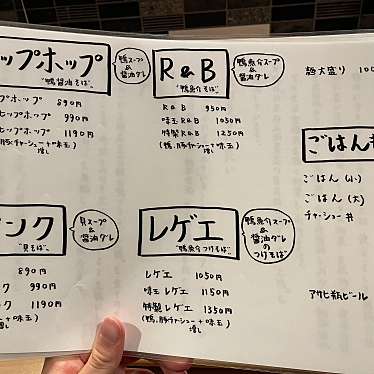 ップホップ
"鴨醤油そば"
鴨スープ
&
醤油ダレ
プホップ 890円
ヒップホップ 990円
ヒップホップ 1190円
豚チャーシュー+味玉)
増し
R&B
"鴨魚介そば"
鴨魚介スープ
&
醤油ダレ
R&B 950円
味玉R&B 1050円
特製R&B 1250円
(鴨、豚チャーシュー+味玉)
増し
麺大盛り 100
ごはん
ごはん (小)
ごはん (大)
チャーシュー丼
ンク
"貝そば"
貝スープ
&
醤油ダレ
890円
ク 990円
ク 1190円
ュー+味玉)
増し
レゲエ
"鴨魚介つけそば"
鴨魚介スープ
&
醤油ダレ
の
つけそば
レゲエ 1050円
味玉レゲエ 1150円
特製レゲエ 1350円
(鴨、豚チャーシュー+味玉)
増し
アサヒ瓶ビール